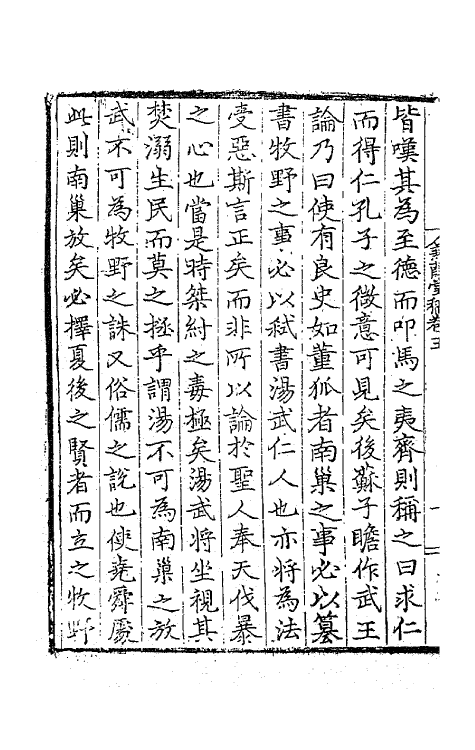 皆嘆其為至德而叩馬之夷齊則稱之曰求仁
而得仁孔子之微意可見矣後蘇子瞻作武王
論乃曰使有良史如董狐者南巢之事必以篡
書牧野之事必以弒書湯武仁人也亦將為法
受惡斯言正矣而非所以論於聖人奉天伐暴
之心也當是時桀紂之毒極矣湯武將坐視其
焚溺生民而莫之拯乎謂湯不可為南巢之放
武不可為牧野之誅又俗儒之說也使堯舜處
此則南巢放矣必擇夏後之賢者而立之牧野
堂稿卷五